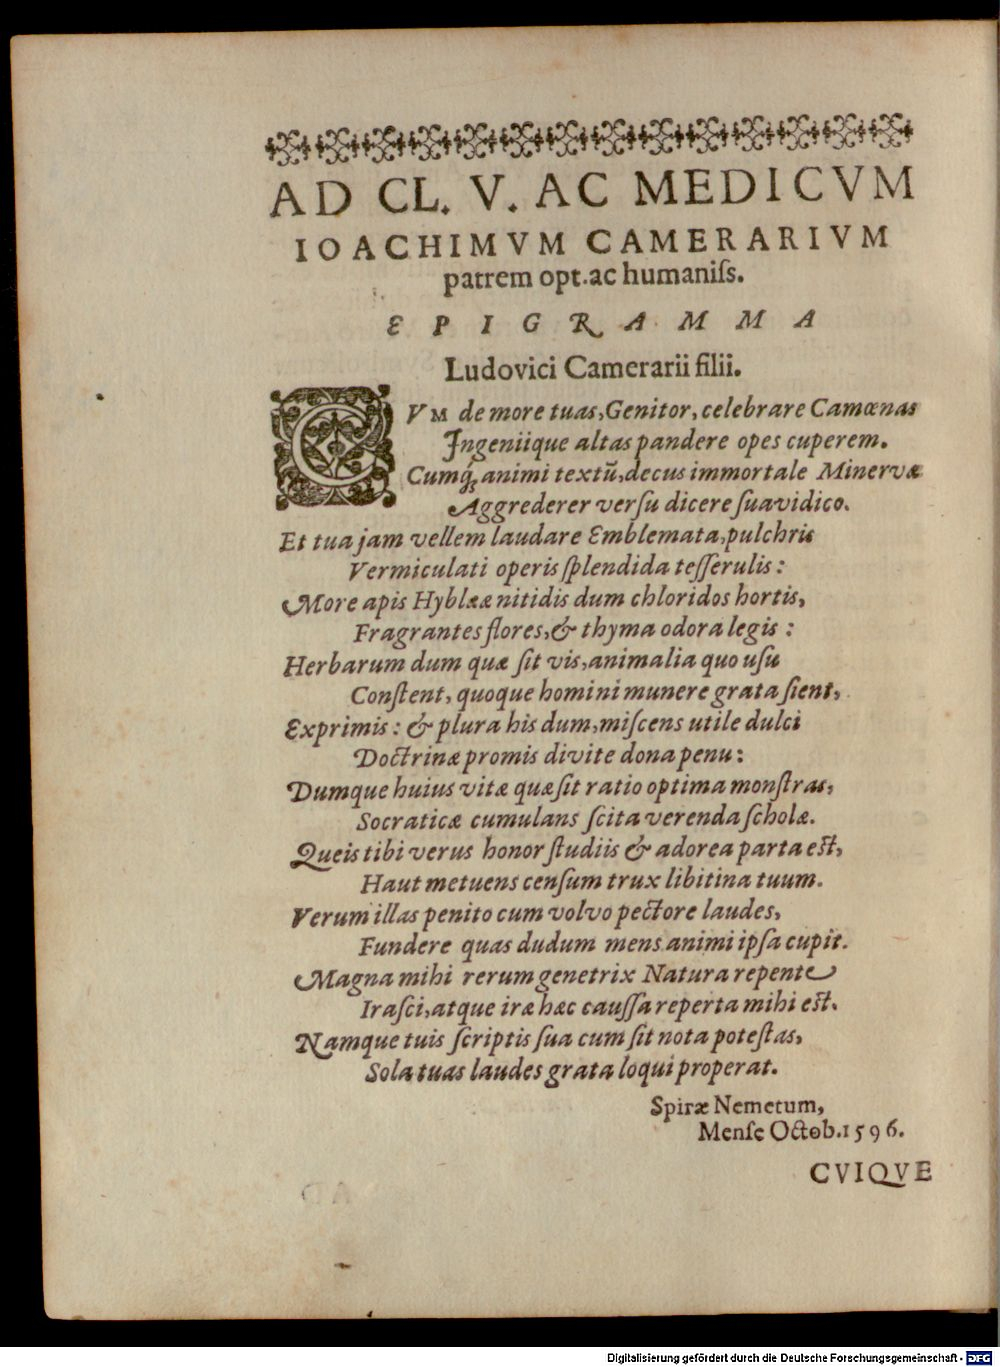 AD CL. V. AC MEDICVM
IOACHIMVM CAMERARIVM
patrem opt. ac humaniſs.
EPIGRAMMA
Ludovici Camerarii filii.
CVM de more tuas, Genitor, celebrare Camœnas
Ingeniique altas pandere opes cuperem.
Cumq́ꝫ animi textũ, decus immortale Minervæ
Aggrederer verſu dicere ſuavidico.
Et tua jam vellem laudare Emblemata, pulchris
Vermiculati operis ſplendida teſſerulis:
More apis Hyblææ nitidis dum chloridos hortis,
Fragrantes flores, & thyma odora legis:
Herbarum dum quæ ſit vis, animalia quo uſu
Conſtent, quoque homini munere grata ſient,
Exprimis: & plura his dum, miſcens utile dulci
Doctrinæ promis divite dona penu:
Dumque huius vitæ quæ ſit ratio optima monſtras,
Socraticæ cumulans ſcita verenda ſcholæ.
Queis tibi verus honor ſtudiis & adorea parta eſt,
Haut metuens cenſum trux libitina tuum.
Verum illas penito cum volvo pectore laudes,
Fundere quas dudum mens animi ipſa cupit.
Magna mihi rerum genetrix Natura repente
Iraſci, atque iræ hæc cauſſa reperta mihi eſt.
Namque tuis ſcriptis ſua cum ſit nota poteſtas,
Sola tuas laudes grata loqui properat.
Spiræ Nemetum,
Menſe Octob. 1596.
CVIQVE
Digitalisierung gefördert durch die Deutsche Forschungsgemeinschaft - DFG